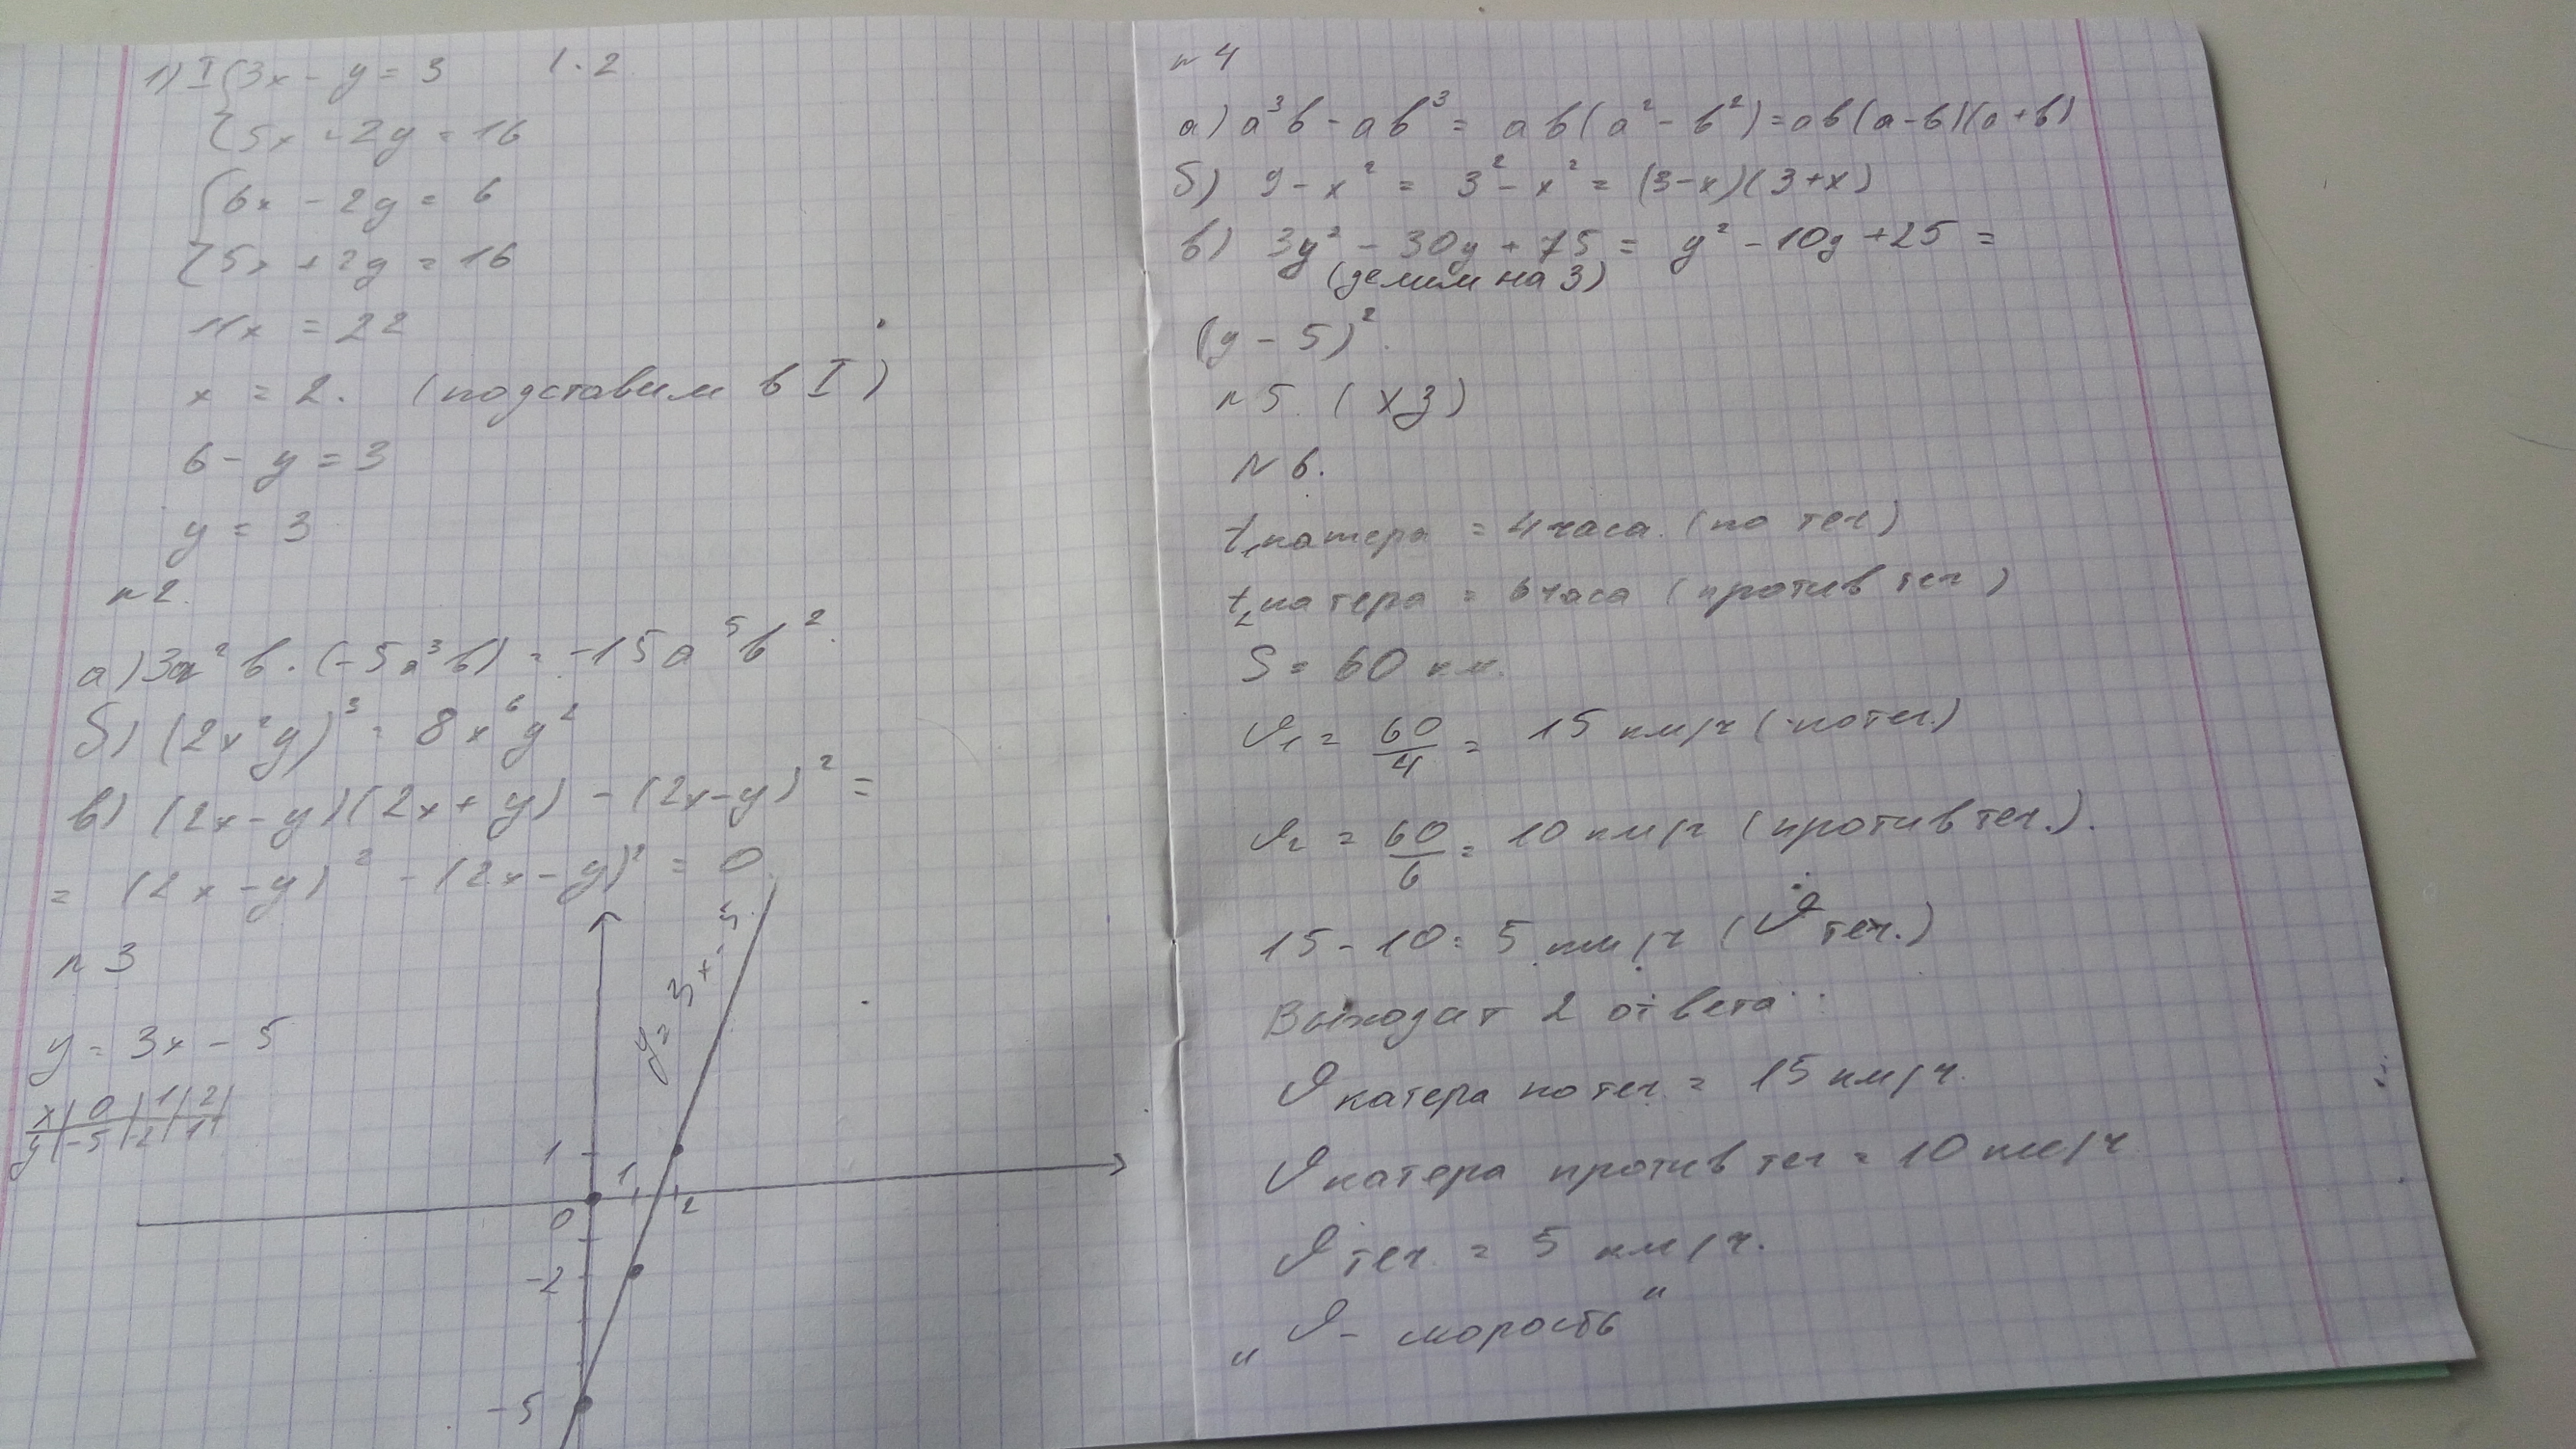 1) I {3x - y = 3 | · 2
{5x - 2y = 16
{6x - 2y = 6
{5x + 2y = 16
11x = 22
x = 2. (подставим в I)
6 - y = 3
y = 3
n2.
а) 3a²b · (-5a³b) = -15a⁵b².
б) (2x²y)³ = 8x⁶y²
в) (2x-y)(2x+y) - (2x-y)² =
= (2x-y)² - (2x-y)² = 0
n3
y = 3x - 5
x | 0 | 1 | 2 |
y | -5 | -2 | 1 |
y = 3x - 5
1
1
0
2
-2
-5
n4
а) a³b - ab³ = ab(a² - b²) = ab(a-b)(a+b)
б) 9 - x² = 3² - x² = (3-x)(3+x)
в) 3y² - 30y + 75 = y² - 10y + 25 =
(делим на 3)
(y - 5)².
n5. (хз)
N6.
t₁ катера = 4 часа. (по теч)
t₂ катера = 6 часа (против теч)
S = 60 км.
υ₁ = 60/4 = 15 км/ч (по теч.)
υ₂ = 60/6 = 10 км/ч (против теч.).
15 - 10 = 5 км/ч (υ теч.)
Выходит 2 ответа:
υ катера по теч = 15 км/ч.
υ катера против теч = 10 км/ч
υ теч. = 5 км/ч.
„υ - скорость"